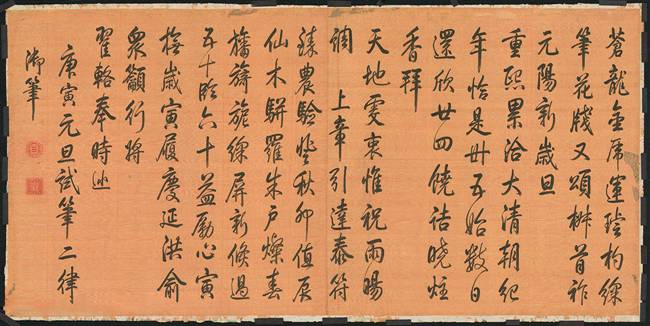 蒼龍金虎運璿杓綵
筆花牋又頌椒首祚
元陽新歲旦
重熙累洽大清朝紀
年恰是卅五始數日
還欣廿四饒詰曉炷
香拜
天地虔衷惟祝雨暘
調 上章引達泰符
臻農驗登秋卯值辰
仙木駢羅朱戶燦春
旛旖旎綵屏新倏過
五十臨六十益勵心寅
撫歲寅履慶延洪俞
眾籲行將
翟輅奉時巡
庚寅元旦試筆二律
御筆